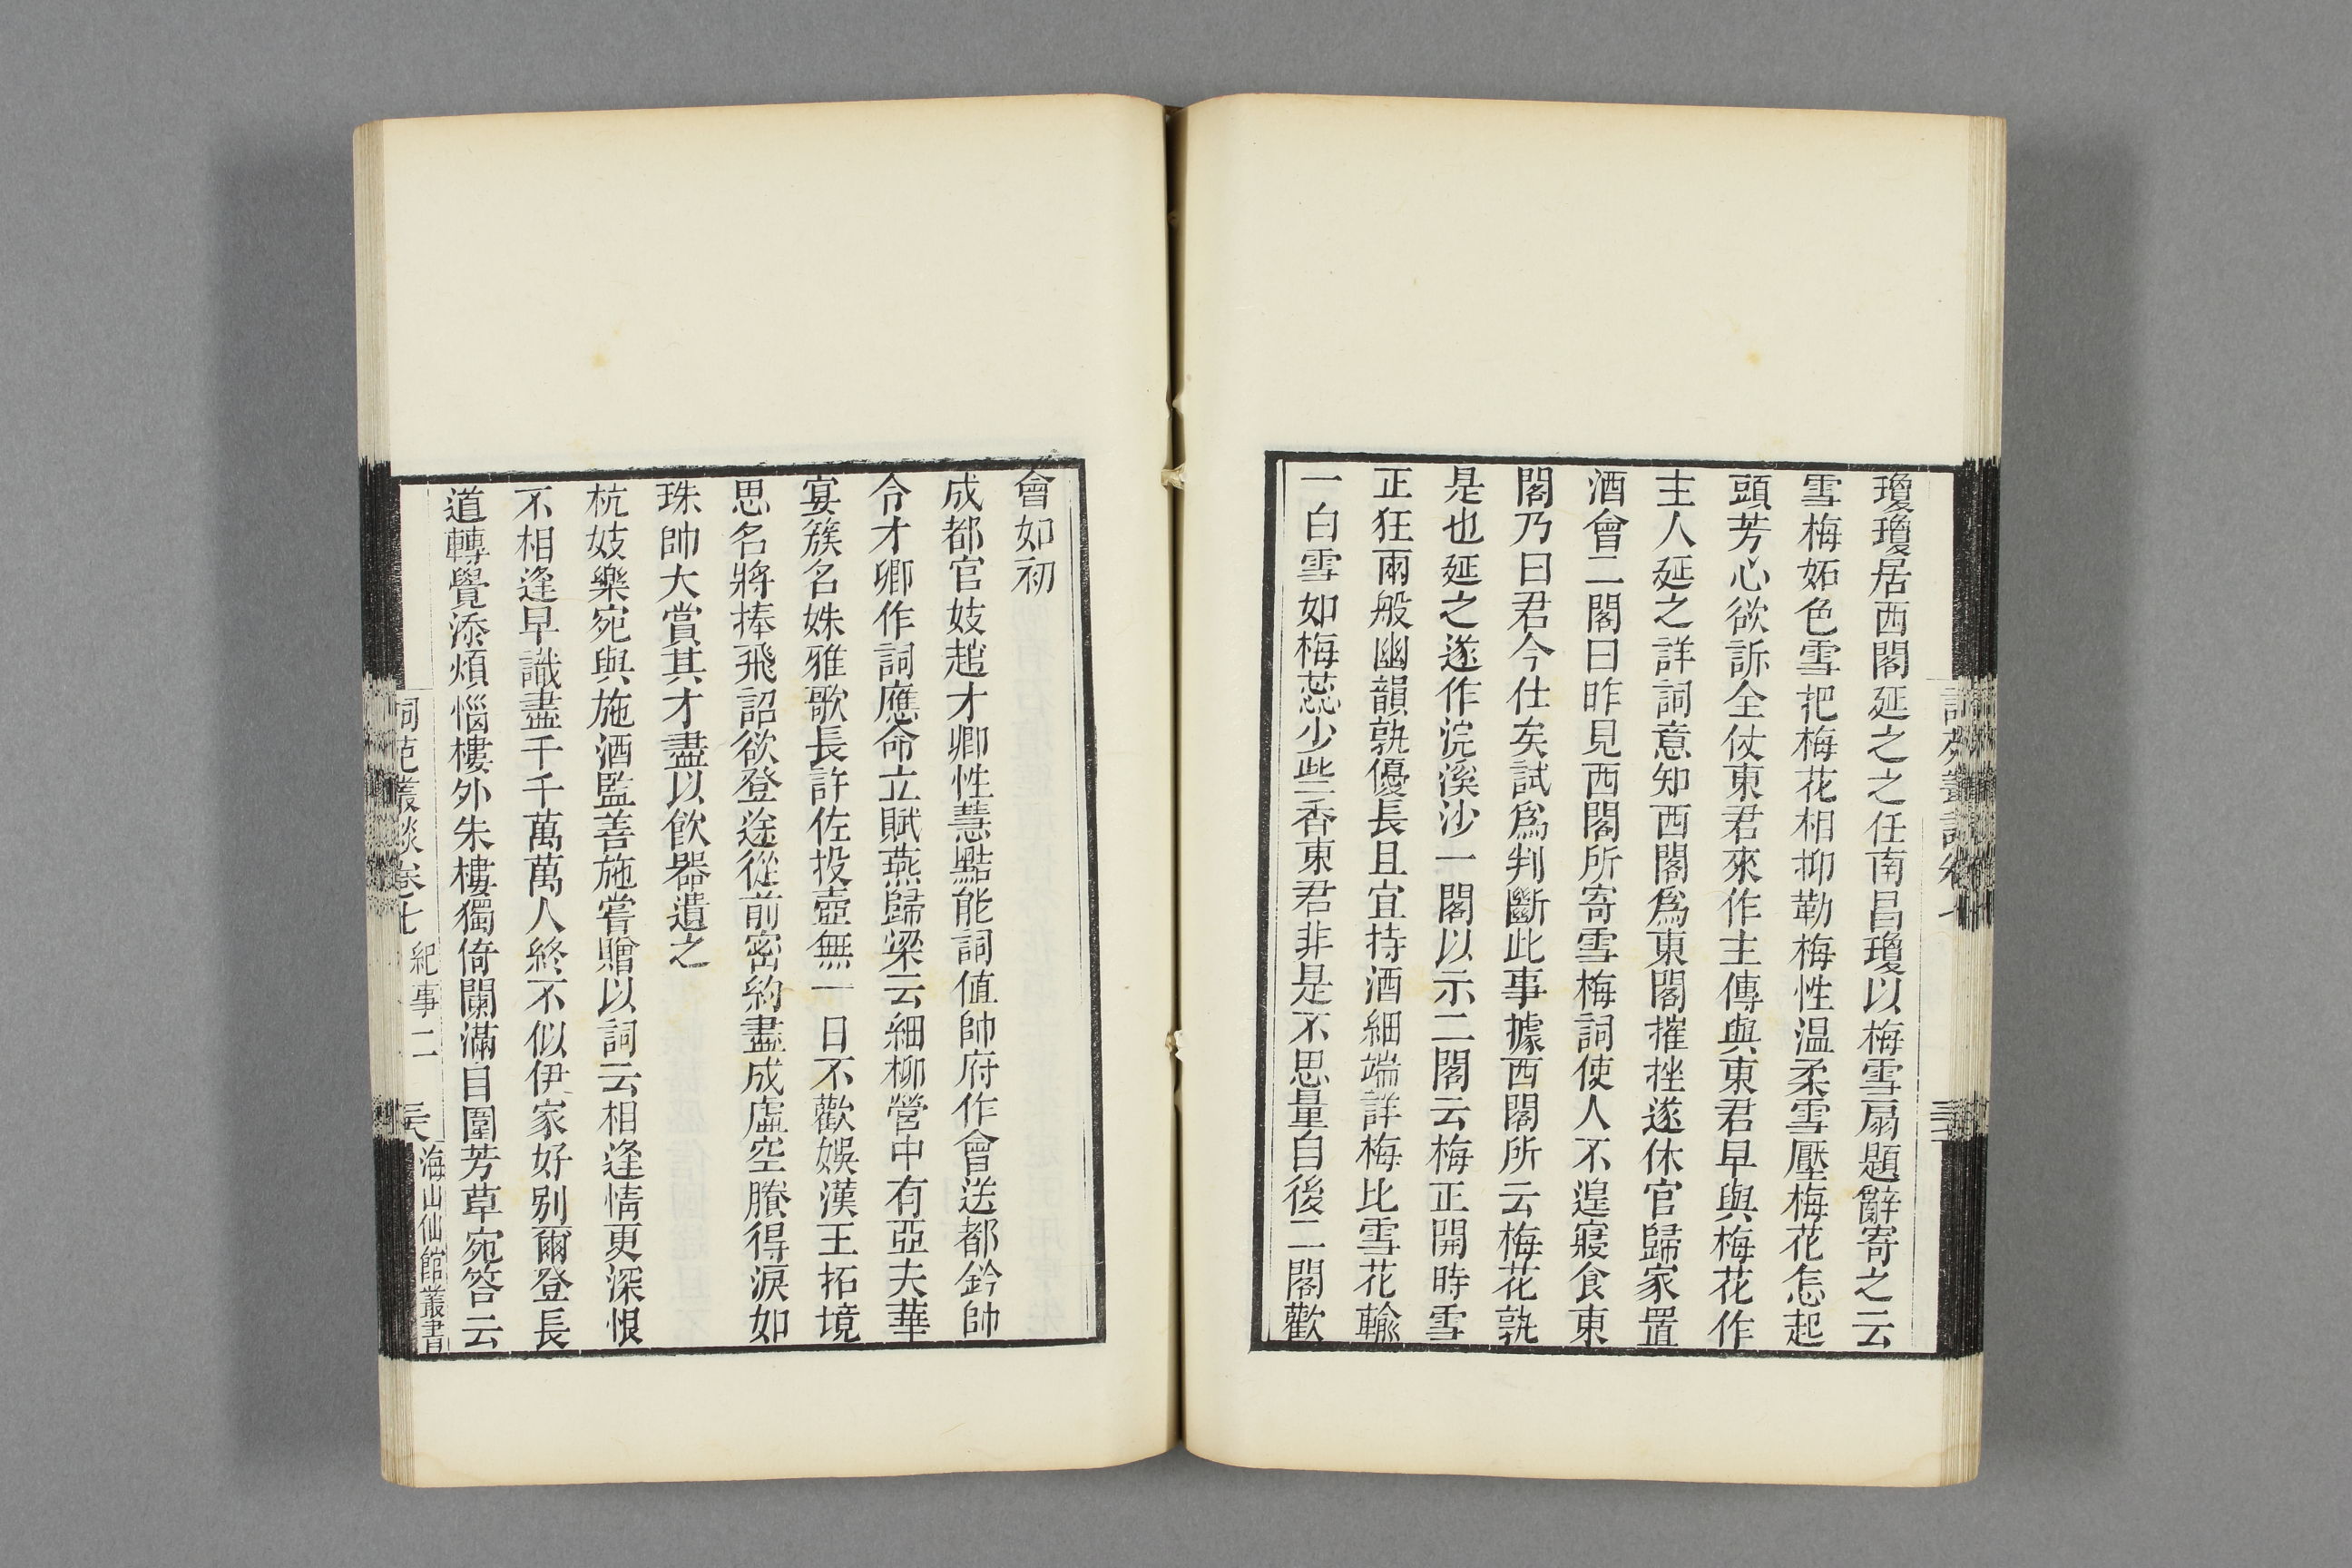 瓊瓊居西閣延之之任南昌瓊以梅雪扇題辭寄之云
雪梅妬色雪把梅花相抑勒梅性温柔雪壓梅花怎起
頭芳心欲訴全仗東君來作主傳與東君早與梅花作
主人延之詳詞意知西閣爲東閣摧挫遂休官歸家置
酒會二閣曰昨見西閣所寄雪梅詞使人不遑寢食東
閣乃曰君今仕矣試爲判斷此事據西閣所云梅花孰
是也延之遂作浣溪沙一闋以示二閣云梅正開時雪
正狂兩般幽韻孰優長且宜持酒細端詳梅比雪花輸
一白雪如梅蕊少些香東君非是不思量自後二閣歡
會如初
成都官妓趙才卿性慧黠能詞值帥府作會送都鈐帥
令才卿作詞應命立賦燕歸梁云細柳營中有亞夫華
宴簇名姝雅歌長許佐投壺無一日不歡娛漢王拓境
思名將捧飛詔欲登途從前密約盡成虛空賸得淚如
珠帥大賞其才盡以飲器遺之
杭妓樂宛與施酒監善施嘗贈以詞云相逢情更深恨
不相逢早識盡千千萬萬人終不似伊家好别爾登長
道轉覺添煩惱樓外朱樓獨倚闌滿目圍芳草宛答云
詞苑叢談卷七 紀事二
海山仙館叢書